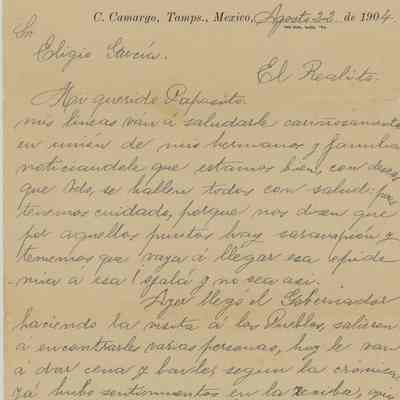 C. Camargo, Tamps., Mexico, Agosto 22 de 1904.
Sr
Eligio Garcia.
El Realito.
Mu queride Papasito.
mis lineas ván á saludarle cariñosamente
en unión de mis hermanos y familia
noticiandole que estamos bien, con deseos
que Vds, se hallen todos con salud: pues
tenemos cuidado, porque nos dicen que
por aquellos puntos hay sarampión y
tememos que vaya á llegar esa epide
-mia á esa! ojalá y no sea asi.
Ayer llegó el Gobernador
haciendo la visita á los Pueblos, salieron
á encontrarle varias personas, hoy le van
á dar cena y baile, segun la crónica
yá hubo sentimientos en la reciba, que